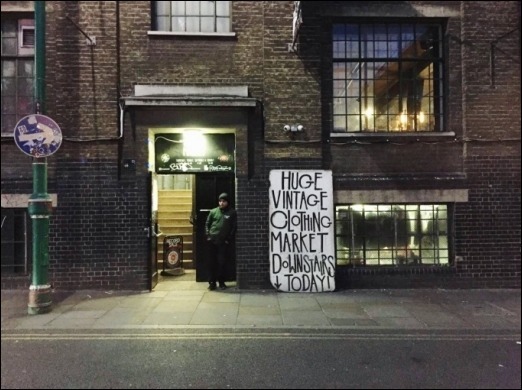 HUGE
VINTAGE
CLOTHING
MARKET
DOWNSTAIRS
↓ TODAY!
RECORD
SALE